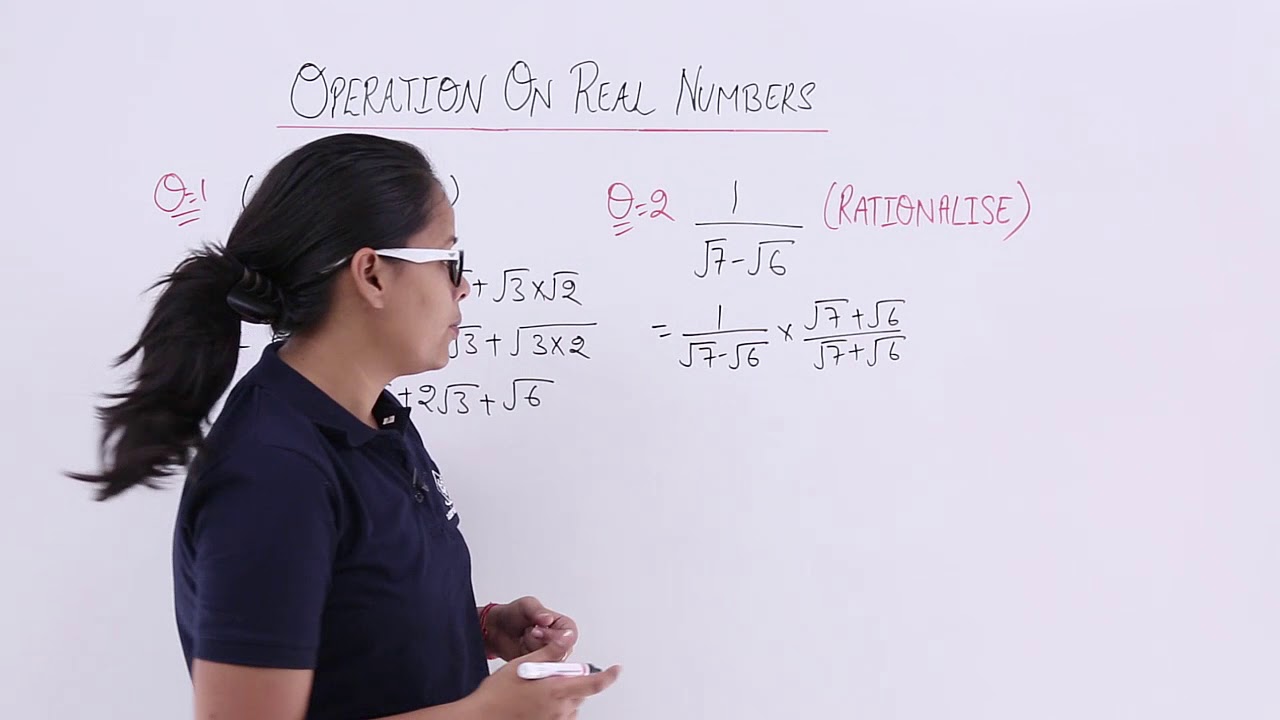 OPERATION ON REAL NUMBERS
Q=1 (          )
+ √3×√2
√3 + √3×2
+ 2√3 + √6
Q=2 1/(√7-√6) (RATIONALISE)
= 1/(√7-√6) × (√7+√6)/(√7+√6)